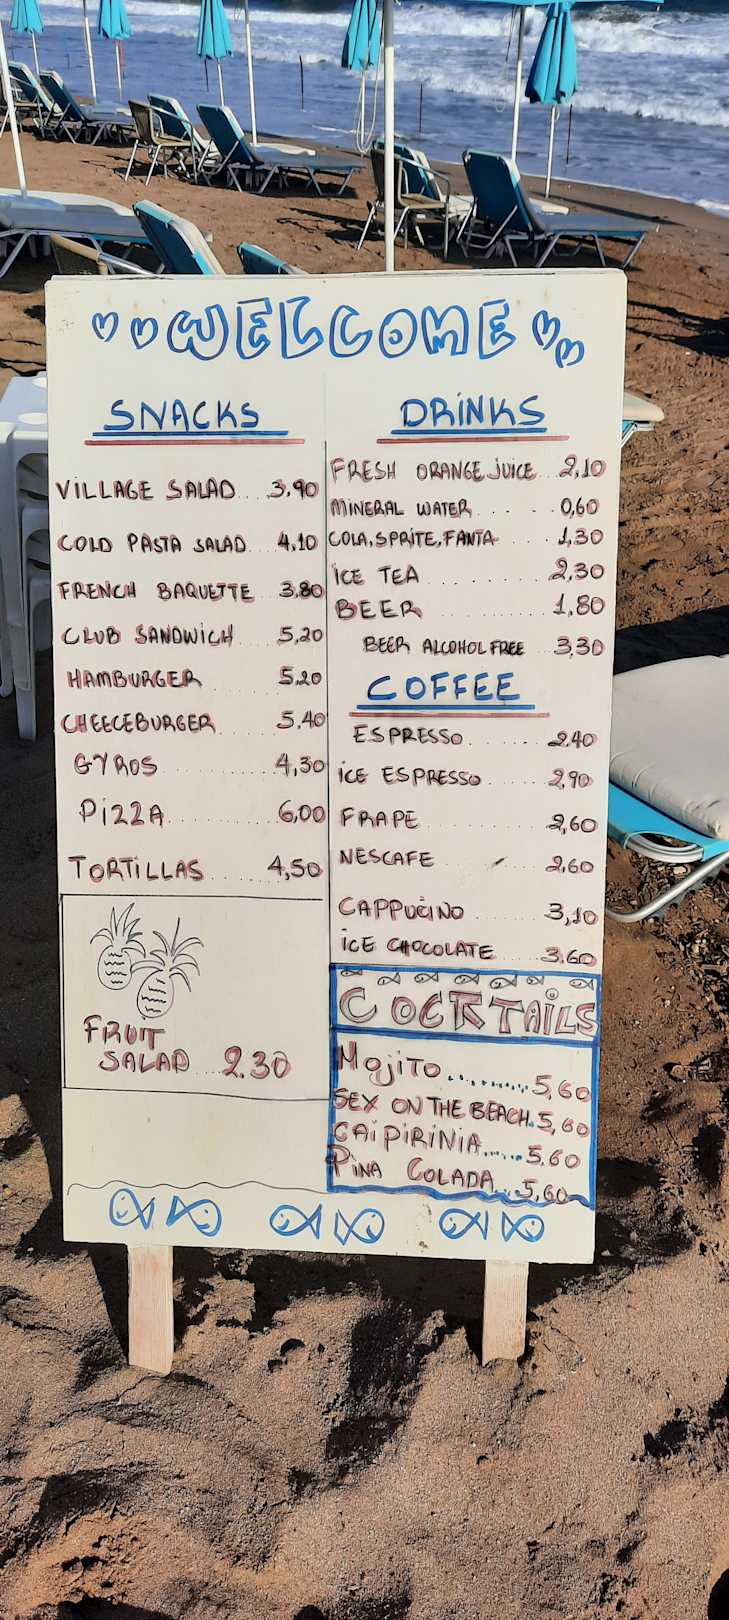 WELCOME
SNACKS
VILLAGE SALAD...3,90
COLD PASTA SALAD...4,10
FRENCH BAQUETTE 3,80
CLUB SANDWICH...5,20
HAMBURGER...5,20
CHEECEBURGER...5,40
GYROS...4,30
PIZZA...6,00
TORTILLAS...4,50
FRUIT
SALAD...2.30
DRINKS
FRESH ORANGE JUICE...2,10
MINERAL WATER....0,60
COLA,SPRITE,FANTA...1,30
ICE TEA.......2,30
BEER.......1,80
BEER ALCOHOL FREE...3,30
COFFEE
ESPRESSO......2.40
ICE ESPRESSO.....2,90
FRAPE.......2,60
NESCAFE....2,60
CAPPUCINO.....3,10
ICE CHOCOLATE....3.60
COCKTAILS
MOJITO...........5,60
SEX ON THE BEACH.5,60
CAIPIRINIA......5.60
PINA COLADA...5,60